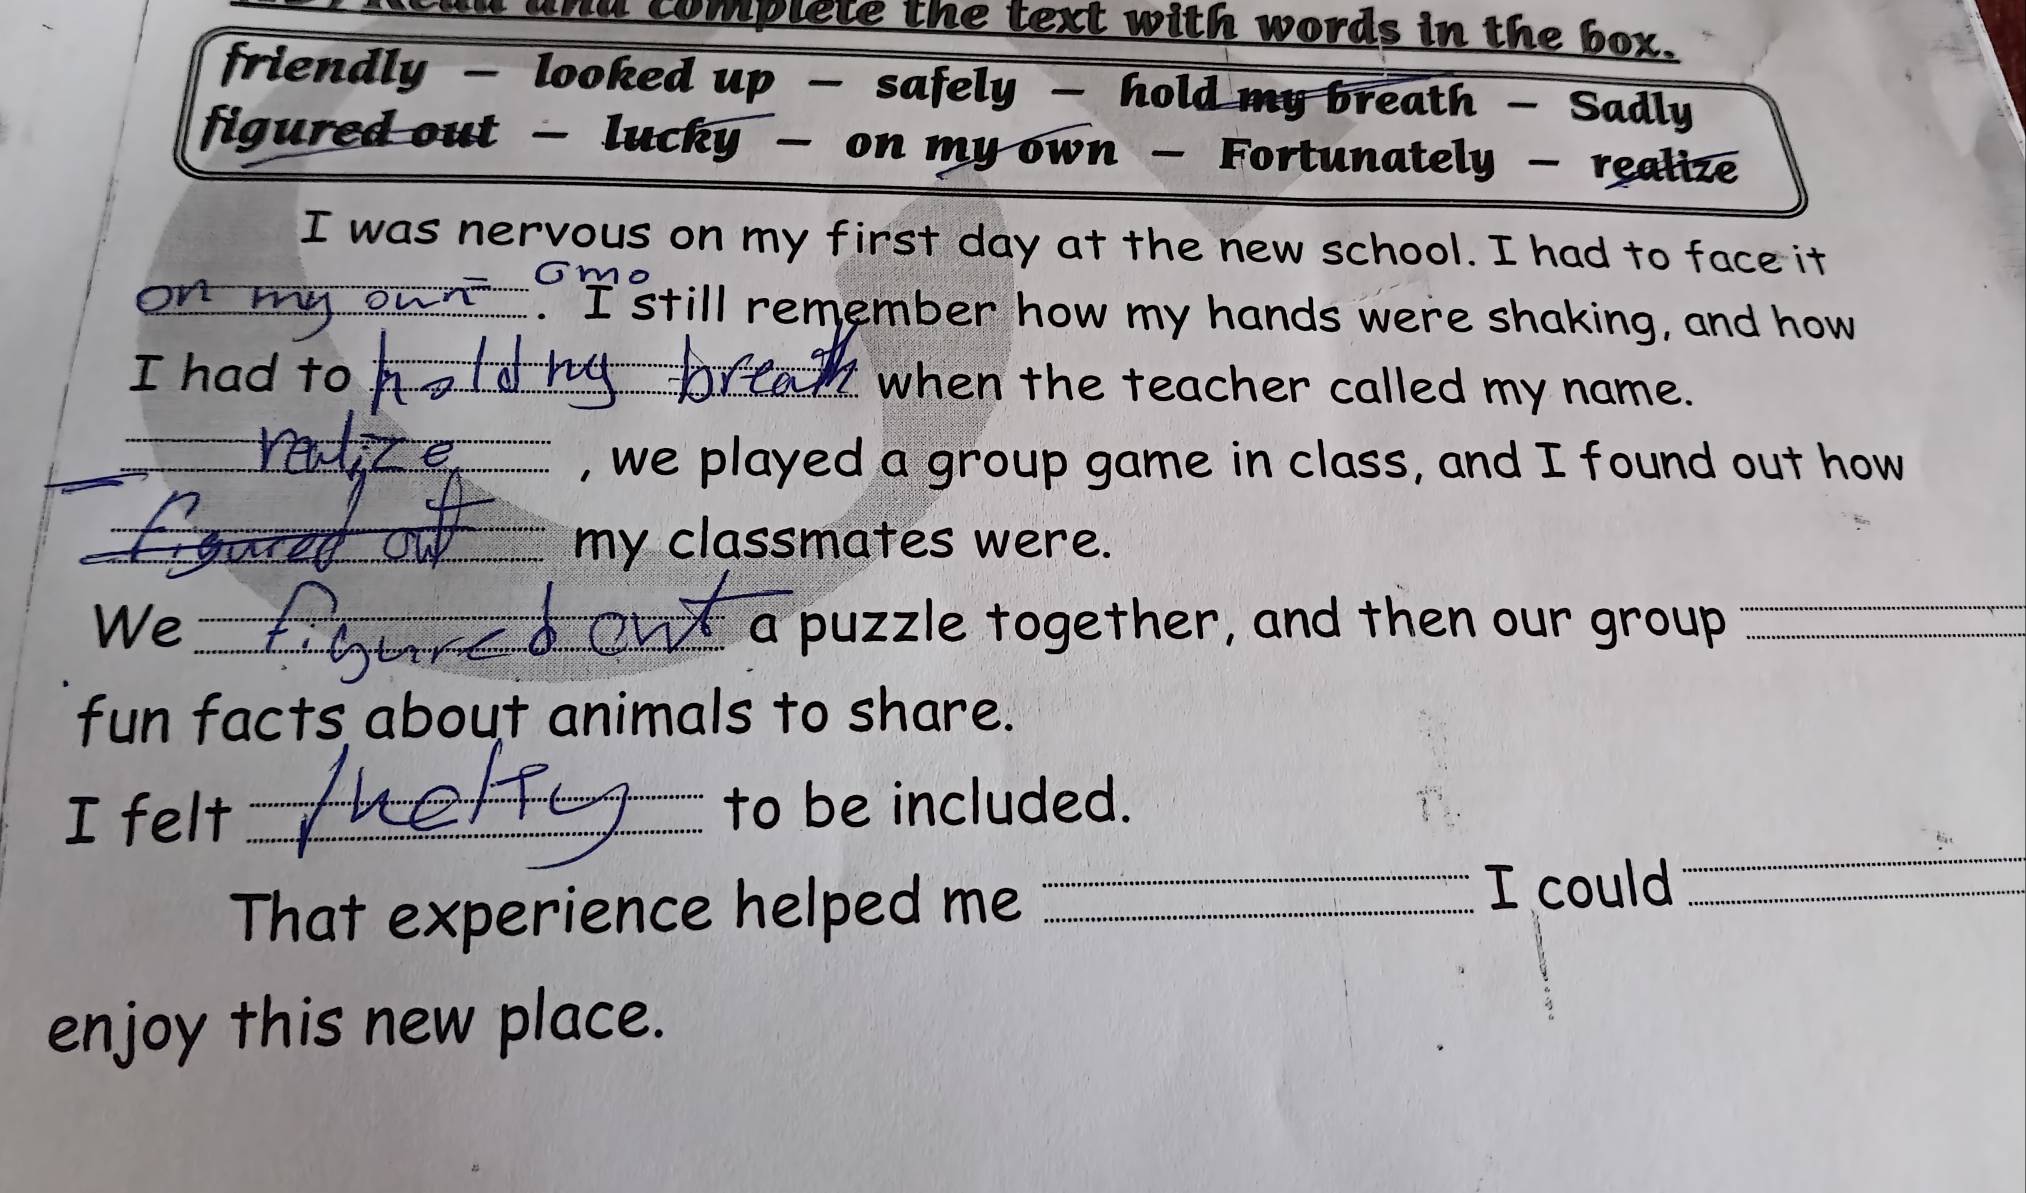 Read and complete the text with words in the box.
friendly – looked up – safely – hold my breath – Sadly
figured out – lucky – on my own – Fortunately – realize
I was nervous on my first day at the new school. I had to face it
on my own. I still remember how my hands were shaking, and how
I had to hold my breath when the teacher called my name.
realize, we played a group game in class, and I found out how
figured out my classmates were.
We figured out a puzzle together, and then our group
fun facts about animals to share.
I felt to be included.
That experience helped me I could
enjoy this new place.